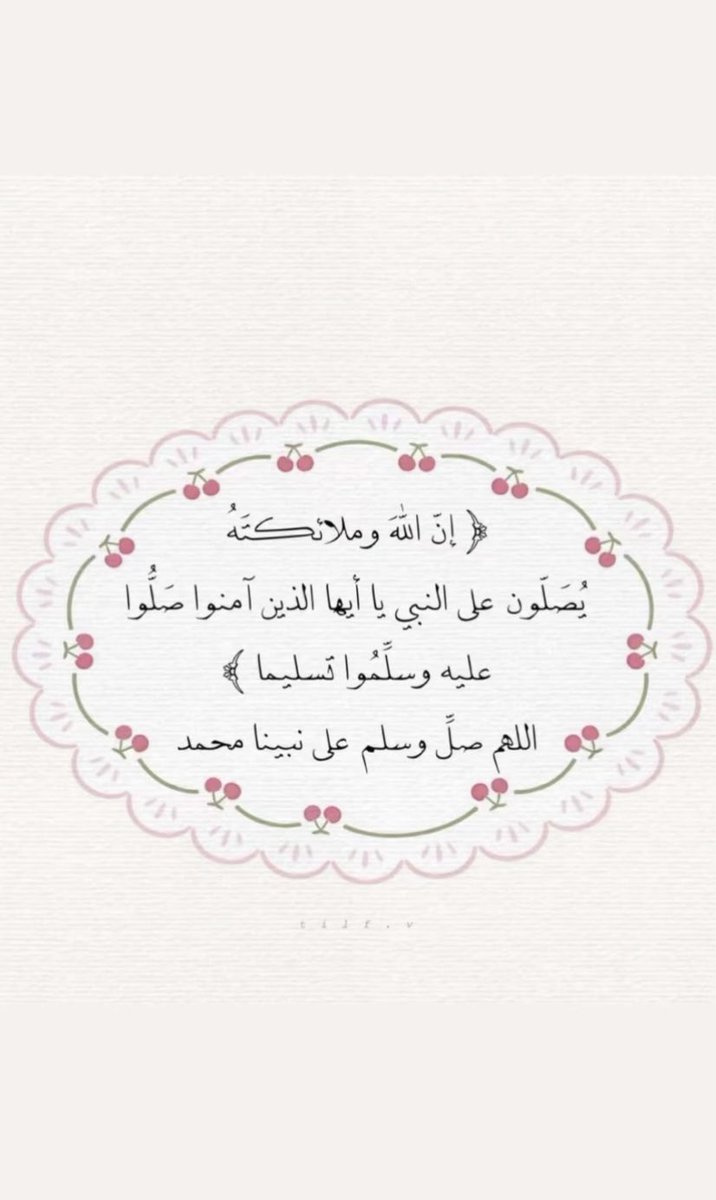 ﴿ إنّ اللهَ وملائكتَهُ
يُصَلّون على النبي يا أيها الذين آمنوا صَلُّوا
عليه وسلِّمُوا تسليما ﴾
اللهم صلِّ وسلم على نبينا محمد
t i l f . v